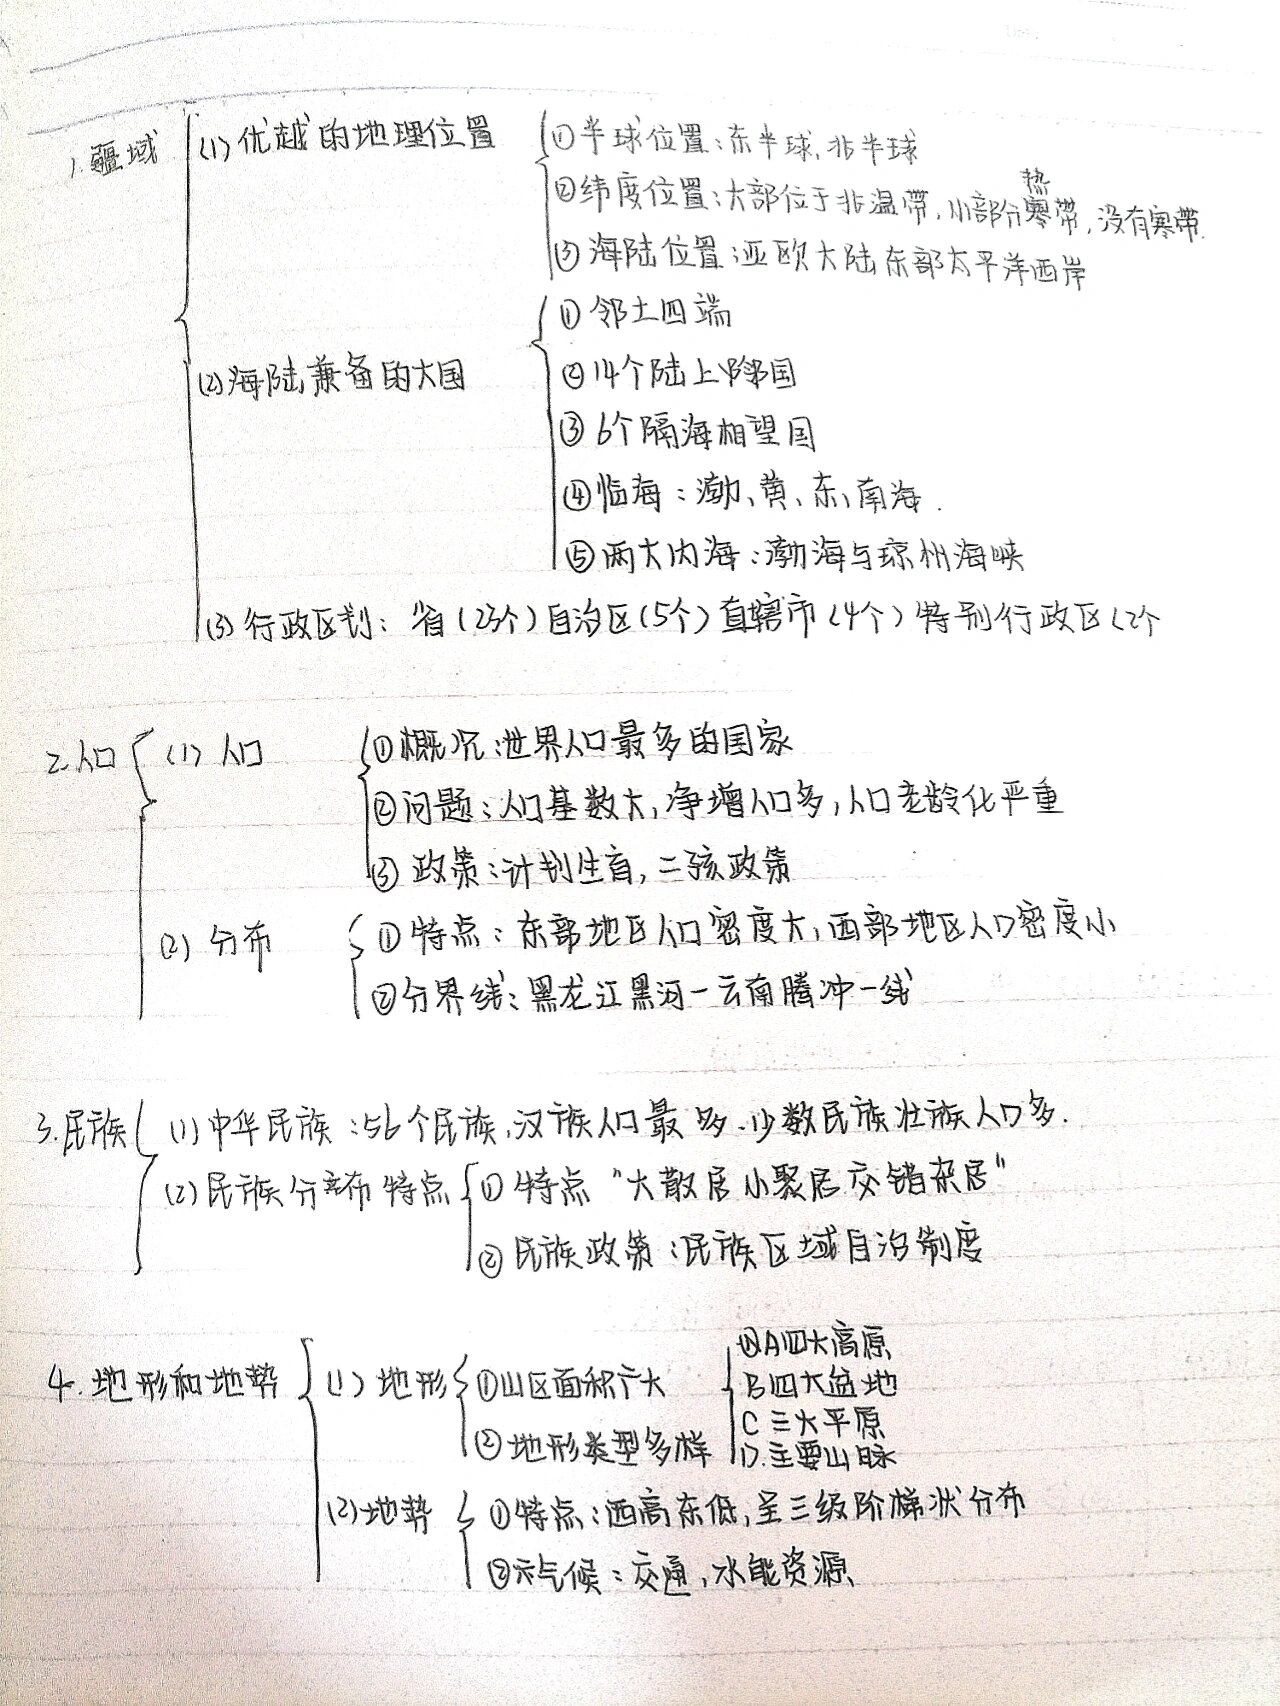 1.疆域 (1)优越的地理位置 ①半球位置:东半球,北半球
热
②纬度位置:大部位于北温带,小部分寒带,没有寒带.
③海陆位置:亚欧大陆东部太平洋西岸
①邻土四端
(2)海陆兼备的大国 ②14个陆上邻国
③6个隔海相望国
④临海:渤、黄、东、南海.
⑤两大内海:渤海与琼州海峡
(3)行政区划:省(23个)自治区(5个)直辖市(4个)特别行政区(2个
2.人口 (1)人口 ①概况:世界人口最多的国家
②问题:人口基数大,净增人口多,人口老龄化严重
③政策:计划生育,二孩政策
(2)分布 ①特点:东部地区人口密度大,西部地区人口密度小
②分界线:黑龙江黑河一云南腾冲一线
3.民族 (1)中华民族:56个民族,汉族人口最多.少数民族壮族人口多.
(2)民族分布特点 ①特点"大散居小聚居交错杂居"
②民族政策:民族区域自治制度
A四大高原
4.地形和地势 (1)地形 ①山区面积广大 B四大盆地
C三大平原
②地形类型多样 D.主要山脉
(2)地势 ①特点:西高东低,呈三级阶梯状分布
②气候:交通,水能资源